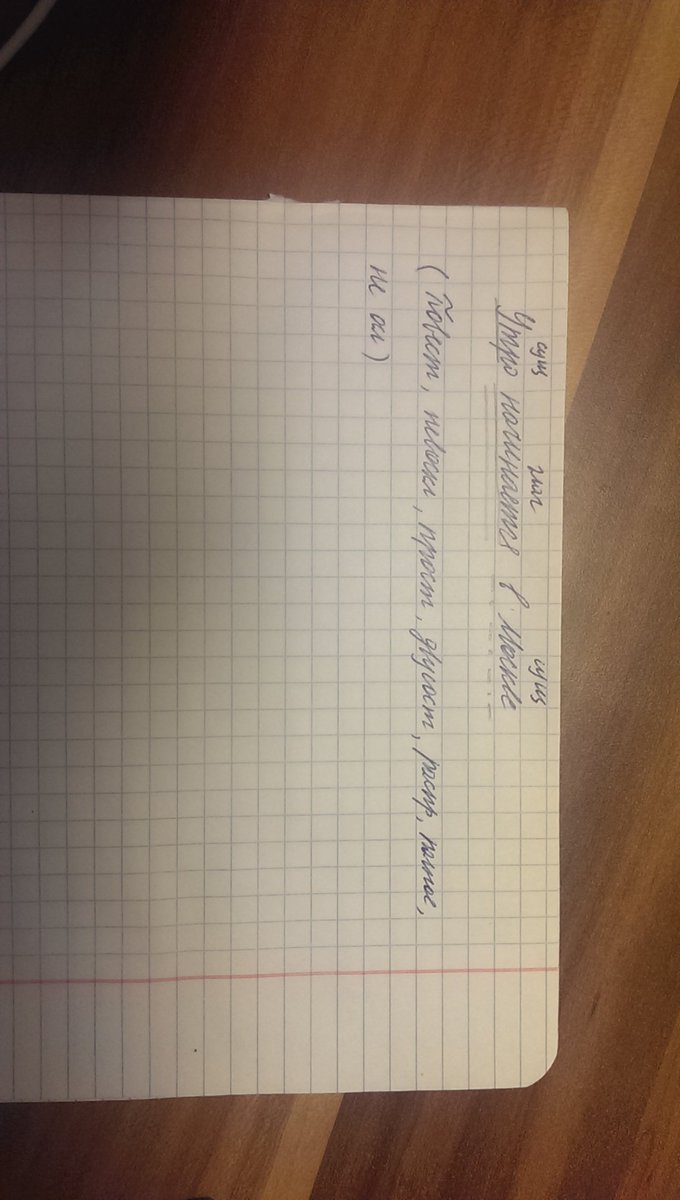 сущ глаг сущ
Утро начинается в Москве
(Повест, невоскл, прост, двусост, распр, полное,
не осл)